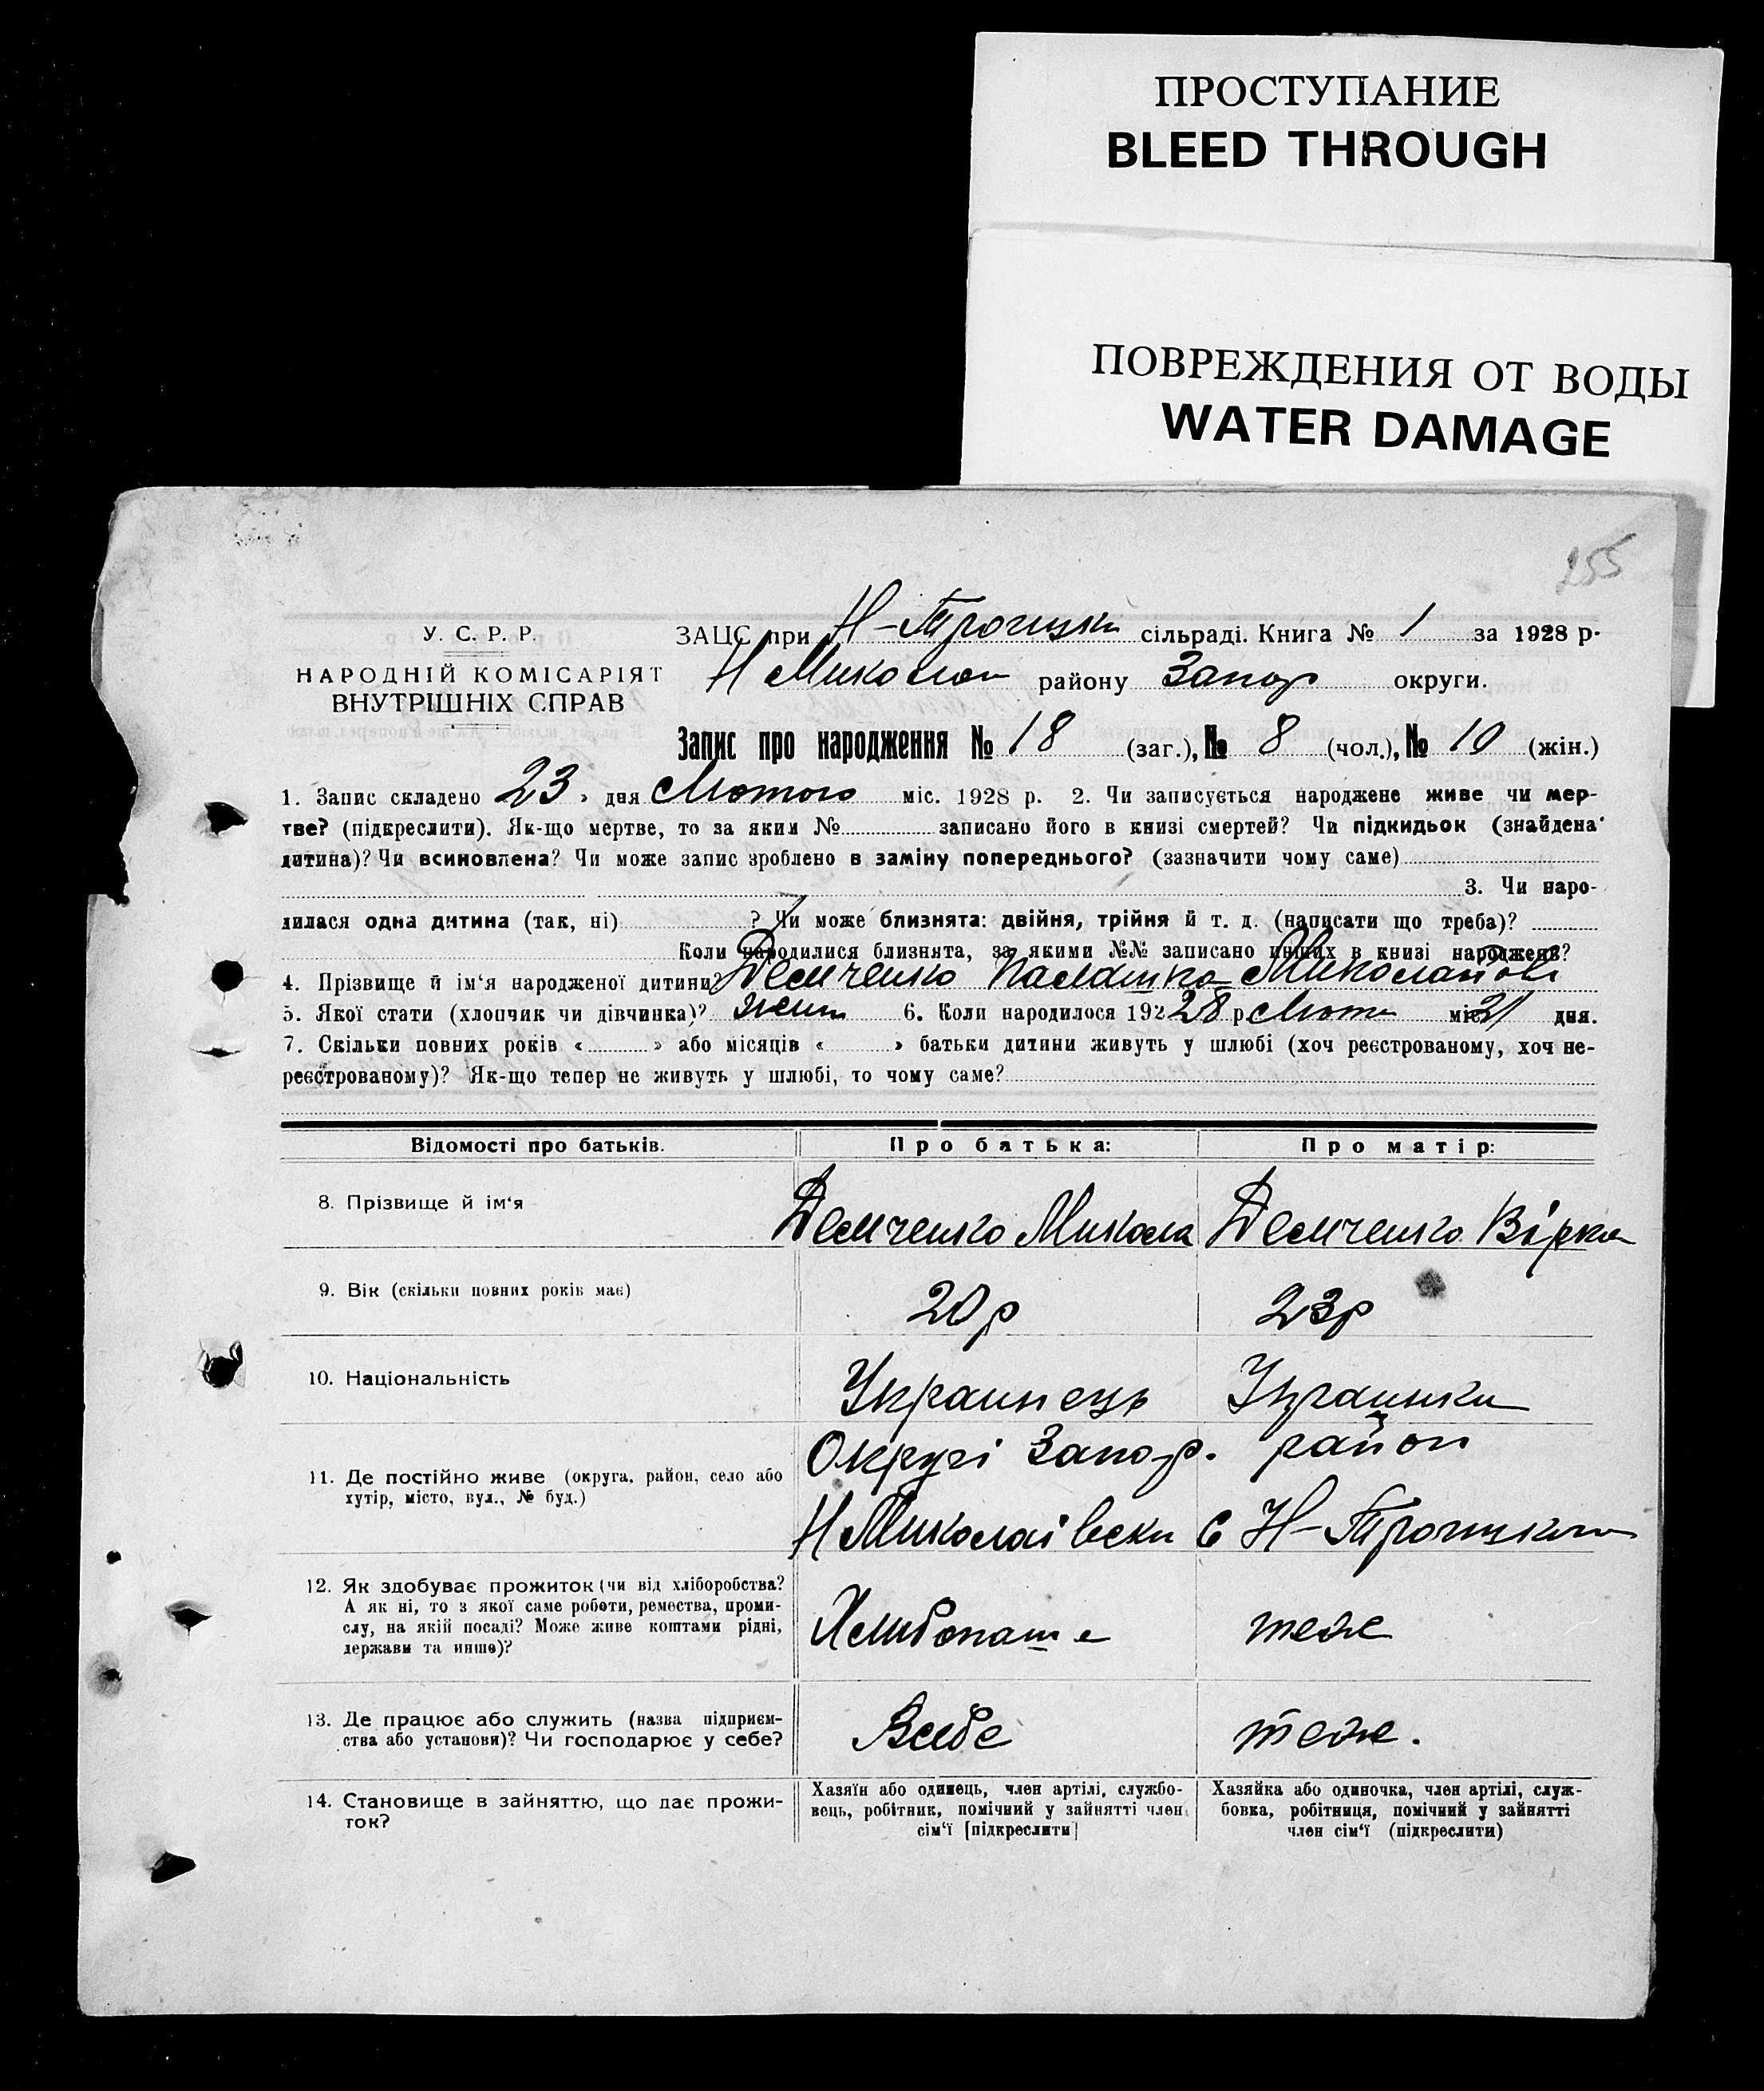 ПРОСТУПАНИЕ
BLEED THROUGH
ПОВРЕЖДЕНИЯ ОТ ВОДЫ
WATER DAMAGE
255
У. С. Р. Р.
НАРОДНІЙ КОМІСАРІЯТ
ВНУТРІШНІХ СПРАВ
ЗАЦС при Н-Троицки сільраді. Книга № 1 за 1928 р.
Н Микола району Запор округи.
Запис про народження № 18 (заг.), № 8 (чол.), № 10 (жін.)
1. Запис складено 23 » дня Лютого міс. 1928 р. 2. Чи записується народжене живе чи мер-
тве? (підкреслити). Як-що мертве, то за яким № записано його в книзі смертей? Чи підкидьок (знайдена
дитина)? Чи всиновлена? Чи може запис зроблено в заміну попереднього? (зазначити чому саме)
3. Чи наро-
дилася одна дитина (так, ні) ? Чи може близнята: двійня, трійня й т. д. (написати що треба)?
Коли народилися близнята, за якими №№ записано инших в книзі народжень?
4. Прізвище й ім'я народженої дитини? Демченко Палашка Миколайов
5. Якої стати (хлопчик чи дівчинка)? жин 6. Коли народилося 192 28 р. Люти міс 21 дня.
7. Скільки повних років « » або місяців « » батьки дитини живуть у шлюбі (хоч реєстрованому, хоч не-
реєстрованому)? Як-що тепер не живуть у шлюбі, то чому саме?
Відомості про батьків. Про батька: Про матір:
8. Прізвище й ім'я Демченко Микола Демченко Вірка
9. Вік (скільки повних років має) 20 р 23 р
10. Національність Украинець Украинки
11. Де постійно живе (округа, район, село або
хутір, місто, вул., № буд.)
Округі Запор. район
Н Миколаівски С Н-Троицком
12. Як здобуває прожиток (чи від хліборобства?
А як ні, то з якої саме роботи, ремества, проми-
слу, на якій посаді? Може живе коштами рідні,
держави та инше)?
Хлибопаше теж
13. Де працює або служить (назва підприєм-
ства або установи)? Чи господарює у себе?
Всебе теж.
14. Становище в зайняттю, що дає прожи-
ток?
Хазяїн або одинець, член артілі, службо-
вець, робітник, помічний у зайнятті член
сім'ї [підкреслити]
Хазяйка або одиночка, член артілі, служ-
бовка, робітниця, помічний у зайнятті
член сім'ї (підкреслити)